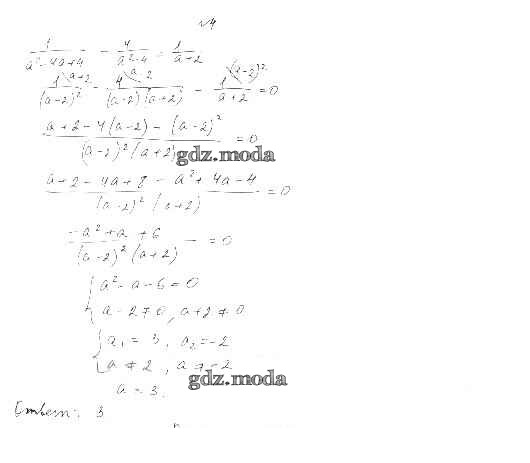 √4
1/(a²-4a+4) - 4/(a²-4) = 1/(a+2)
1\a+2/(a-2)² - 4\a-2/((a-2)(a+2)) - 1\(a-2)²/(a+2) = 0
(a+2-4(a-2)-(a-2)²)/((a-2)²(a+2)) = 0
gdz.moda
(a+2-4a+8-a²+4a-4)/((a-2)²(a+2)) = 0
(-a²+a+6)/((a-2)²(a+2)) = 0
{ a²-a-6=0
a-2≠0, a+2≠0
{ a₁=3, a₂=-2
a≠2, a≠-2
gdz.moda
a=3.
Ответ: 3